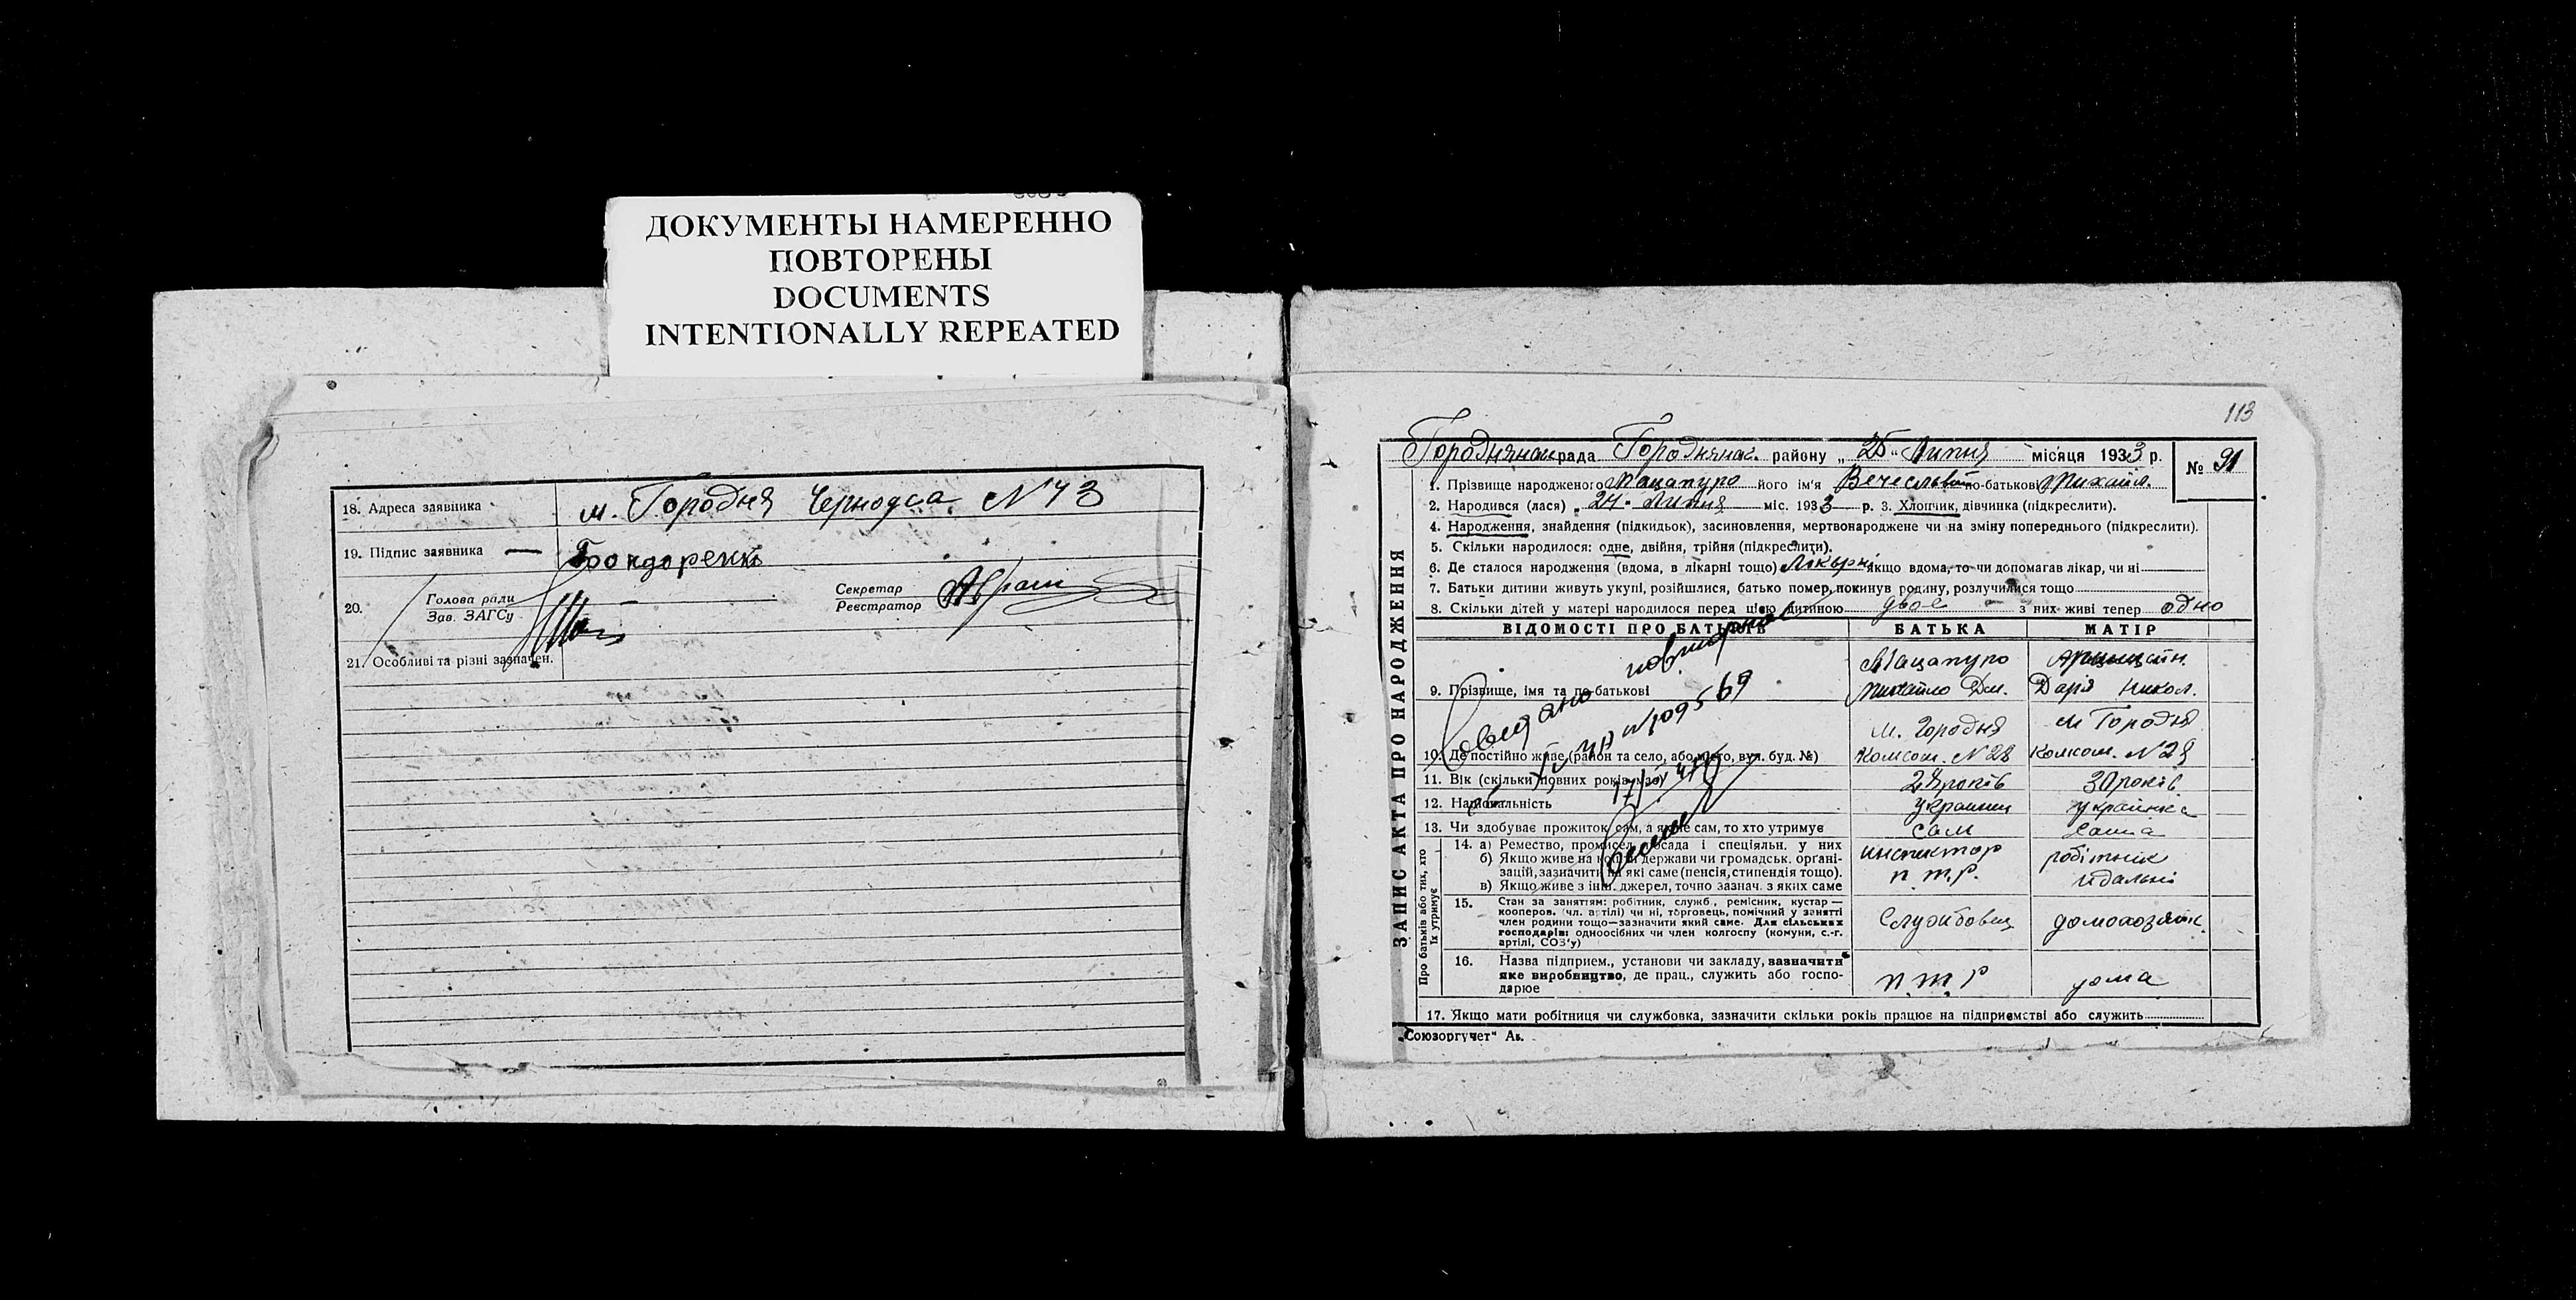 ДОКУМЕНТЫ НАМЕРЕННО
ПОВТОРЕНЫ
DOCUMENTS
INTENTIONALLY REPEATED
18. Адреса заявника м. Городня N 43
19. Підпис заявника — Бондаренко
20. Голова ради
Зав. ЗАГСу
Секретар
Реестратор
21. Особливі та різні зазначен.
113
рада Городнянс. району „25“ Липня місяця 1933 р.
№ 91
1. Прізвище народженого Мацапуро його ім'я Вечеслав по-батькові Михайл.
2. Народився (лася) „24“ Липня міс. 1933 р. 3. Хлопчик, дівчинка (підкреслити).
4. Народження, знайдення (підкидьок), засиновлення, мертвонароджене чи на зміну попереднього (підкреслити).
5. Скільки народилося: одне, двійня, трійня (підкреслити).
6. Де сталося народження (вдома, в лікарні тощо) якщо вдома, то чи допомагав лікар, чи ні
7. Батьки дитини живуть укупі, розійшлися, батько помер, покинув родину, розлучилися тощо
8. Скільки дітей у матері народилося перед цією дитиною двое з них живі тепер одно
ЗАПИС АКТА ПРО НАРОДЖЕННЯ
ВІДОМОСТІ ПРО БАТЬКІВ БАТЬКА МАТІР
Мацапуро
9. Прізвище, імя та по-батькові Михайло Дм. Дарія Никол.
м. Городня м Городня
10. Де постійно живе (район та село, або місто, вул. буд. №) Комсом. N 28 Комсом. N 28
11. Вік (скільки повних років має) 28 років 30 років
12. Національність украинец українка
13. Чи здобуває прожиток сам, а як не сам, то хто утримує сам сама
Про батьків або тих, хто їх утримує
14. а) Ремество, промисел, посада і спеціяльн. у них инспектор робітник
б) Якщо живе на кошти держави чи громадськ. органі- п.т.р. идальні
зацій, зазначити які саме (пенсія, стипендія тощо).
в) Якщо живе з інш. джерел, точно зазнач. з яких саме
15. Стан за заняттям: робітник, служб., ремісник, кустар—
кооперов. (чл. артілі) чи ні, торговець, помічний у занятті
член родини тощо—зазначити який саме. Для сільських службовец домохозяйк.
господарів: одноосібних чи член колгоспу (комуни, с.-г.
артілі, СОЗ'у)
16. Назва підприєм., установи чи закладу, вазначити
яке виробництво, де прац., служить або госпо- п.т.р дома
дарює
17. Якщо мати робітниця чи службовка, зазначити скільки років працює на підприємстві або служить
„Союзоргучет“